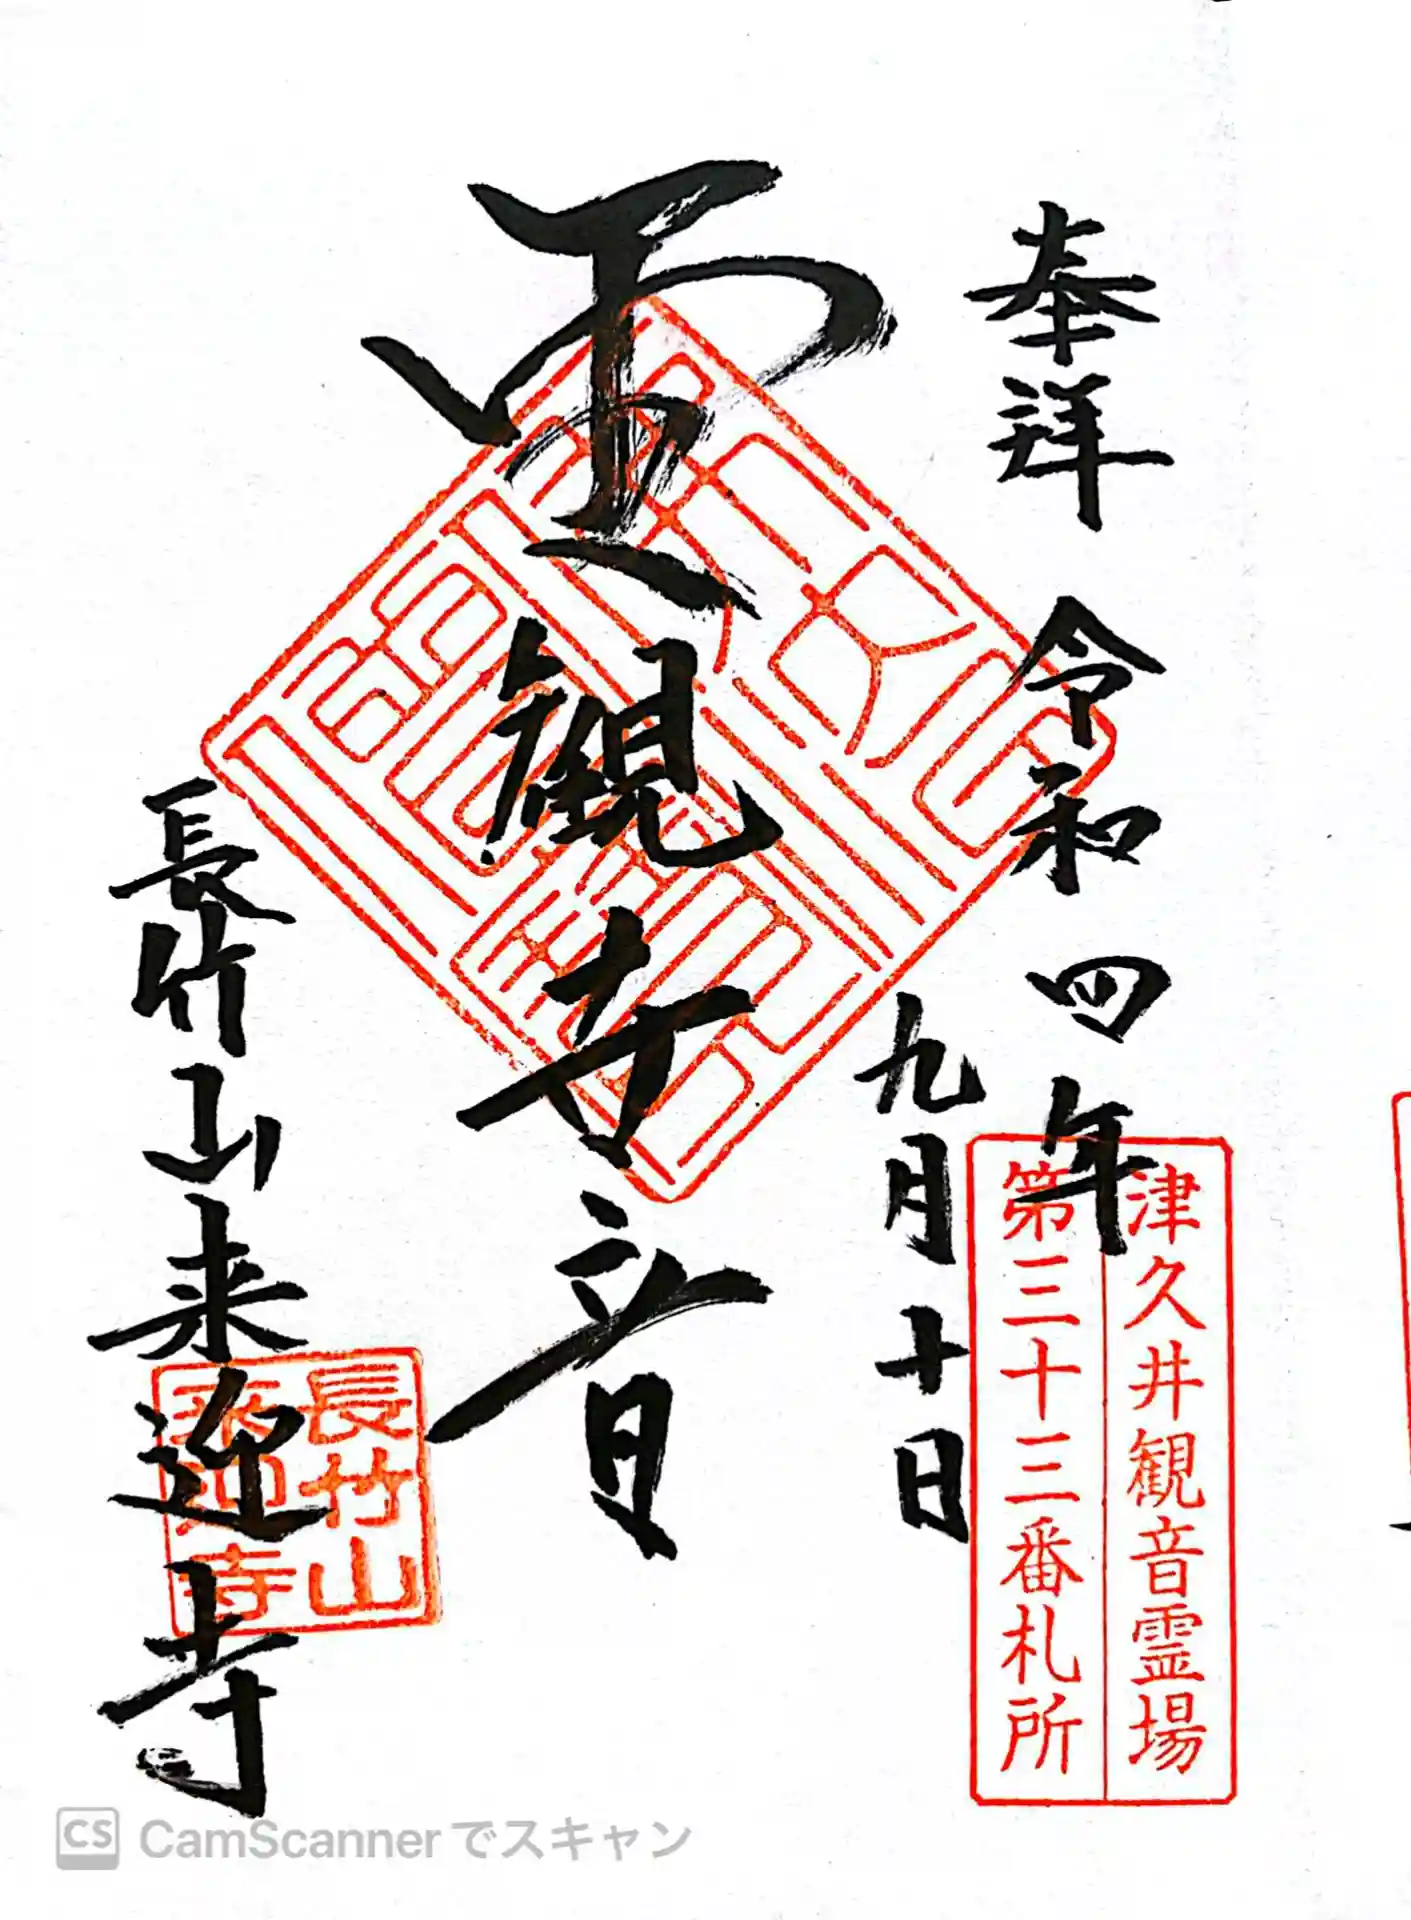 奉拝 令和四年
九月十日
津久井観音霊場
第三十三番札所
観世音
長竹山来迎寺
長竹山
来迎寺
CS CamScannerでスキャン